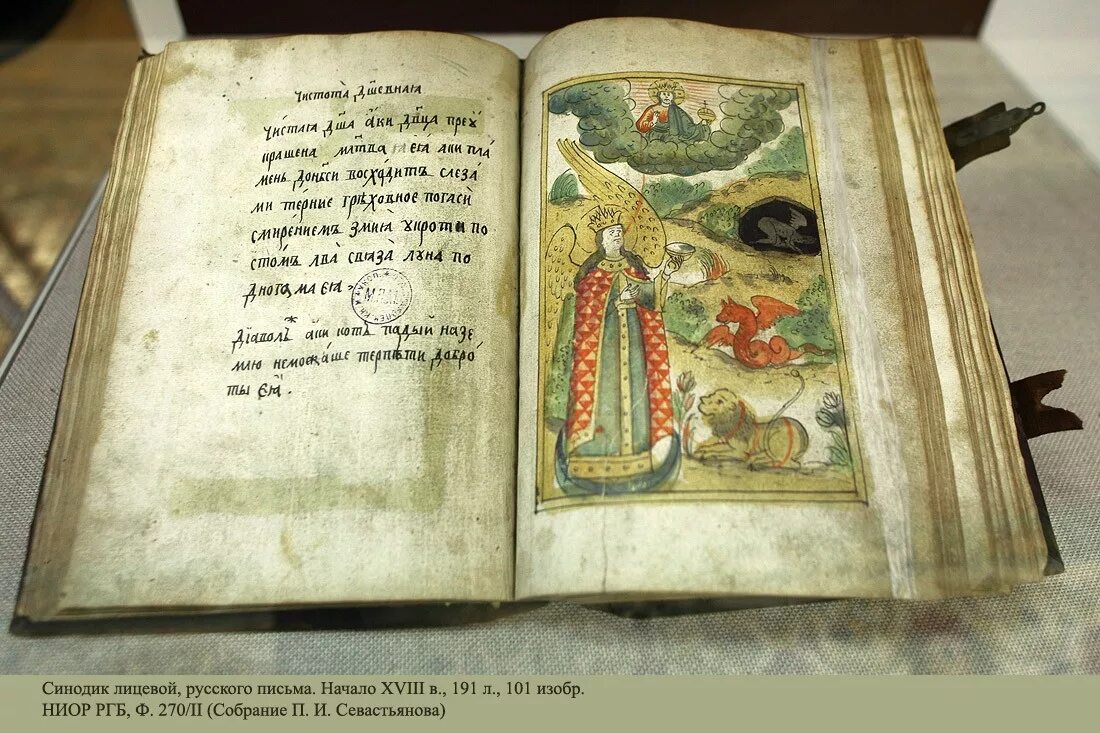 Чистота дшевнаѧ
Чистаѧ дша аки двца преꙋ
крашена млтва еѧ аки пла
мень до нбси восходитъ слеза
ми терние грѣховное погаси
смирениемъ змиѧ укроти по
стомъ лва свѧза луна по
д ногама еѧ.
Дїаволъ аки котъ падый на зе
млю не можаше терпѣти добро
ты еѧ.
Синодик лицевой, русского письма. Начало XVIII в., 191 л., 101 изобр.
НИОР РГБ, Ф. 270/II (Собрание П. И. Севастьянова)